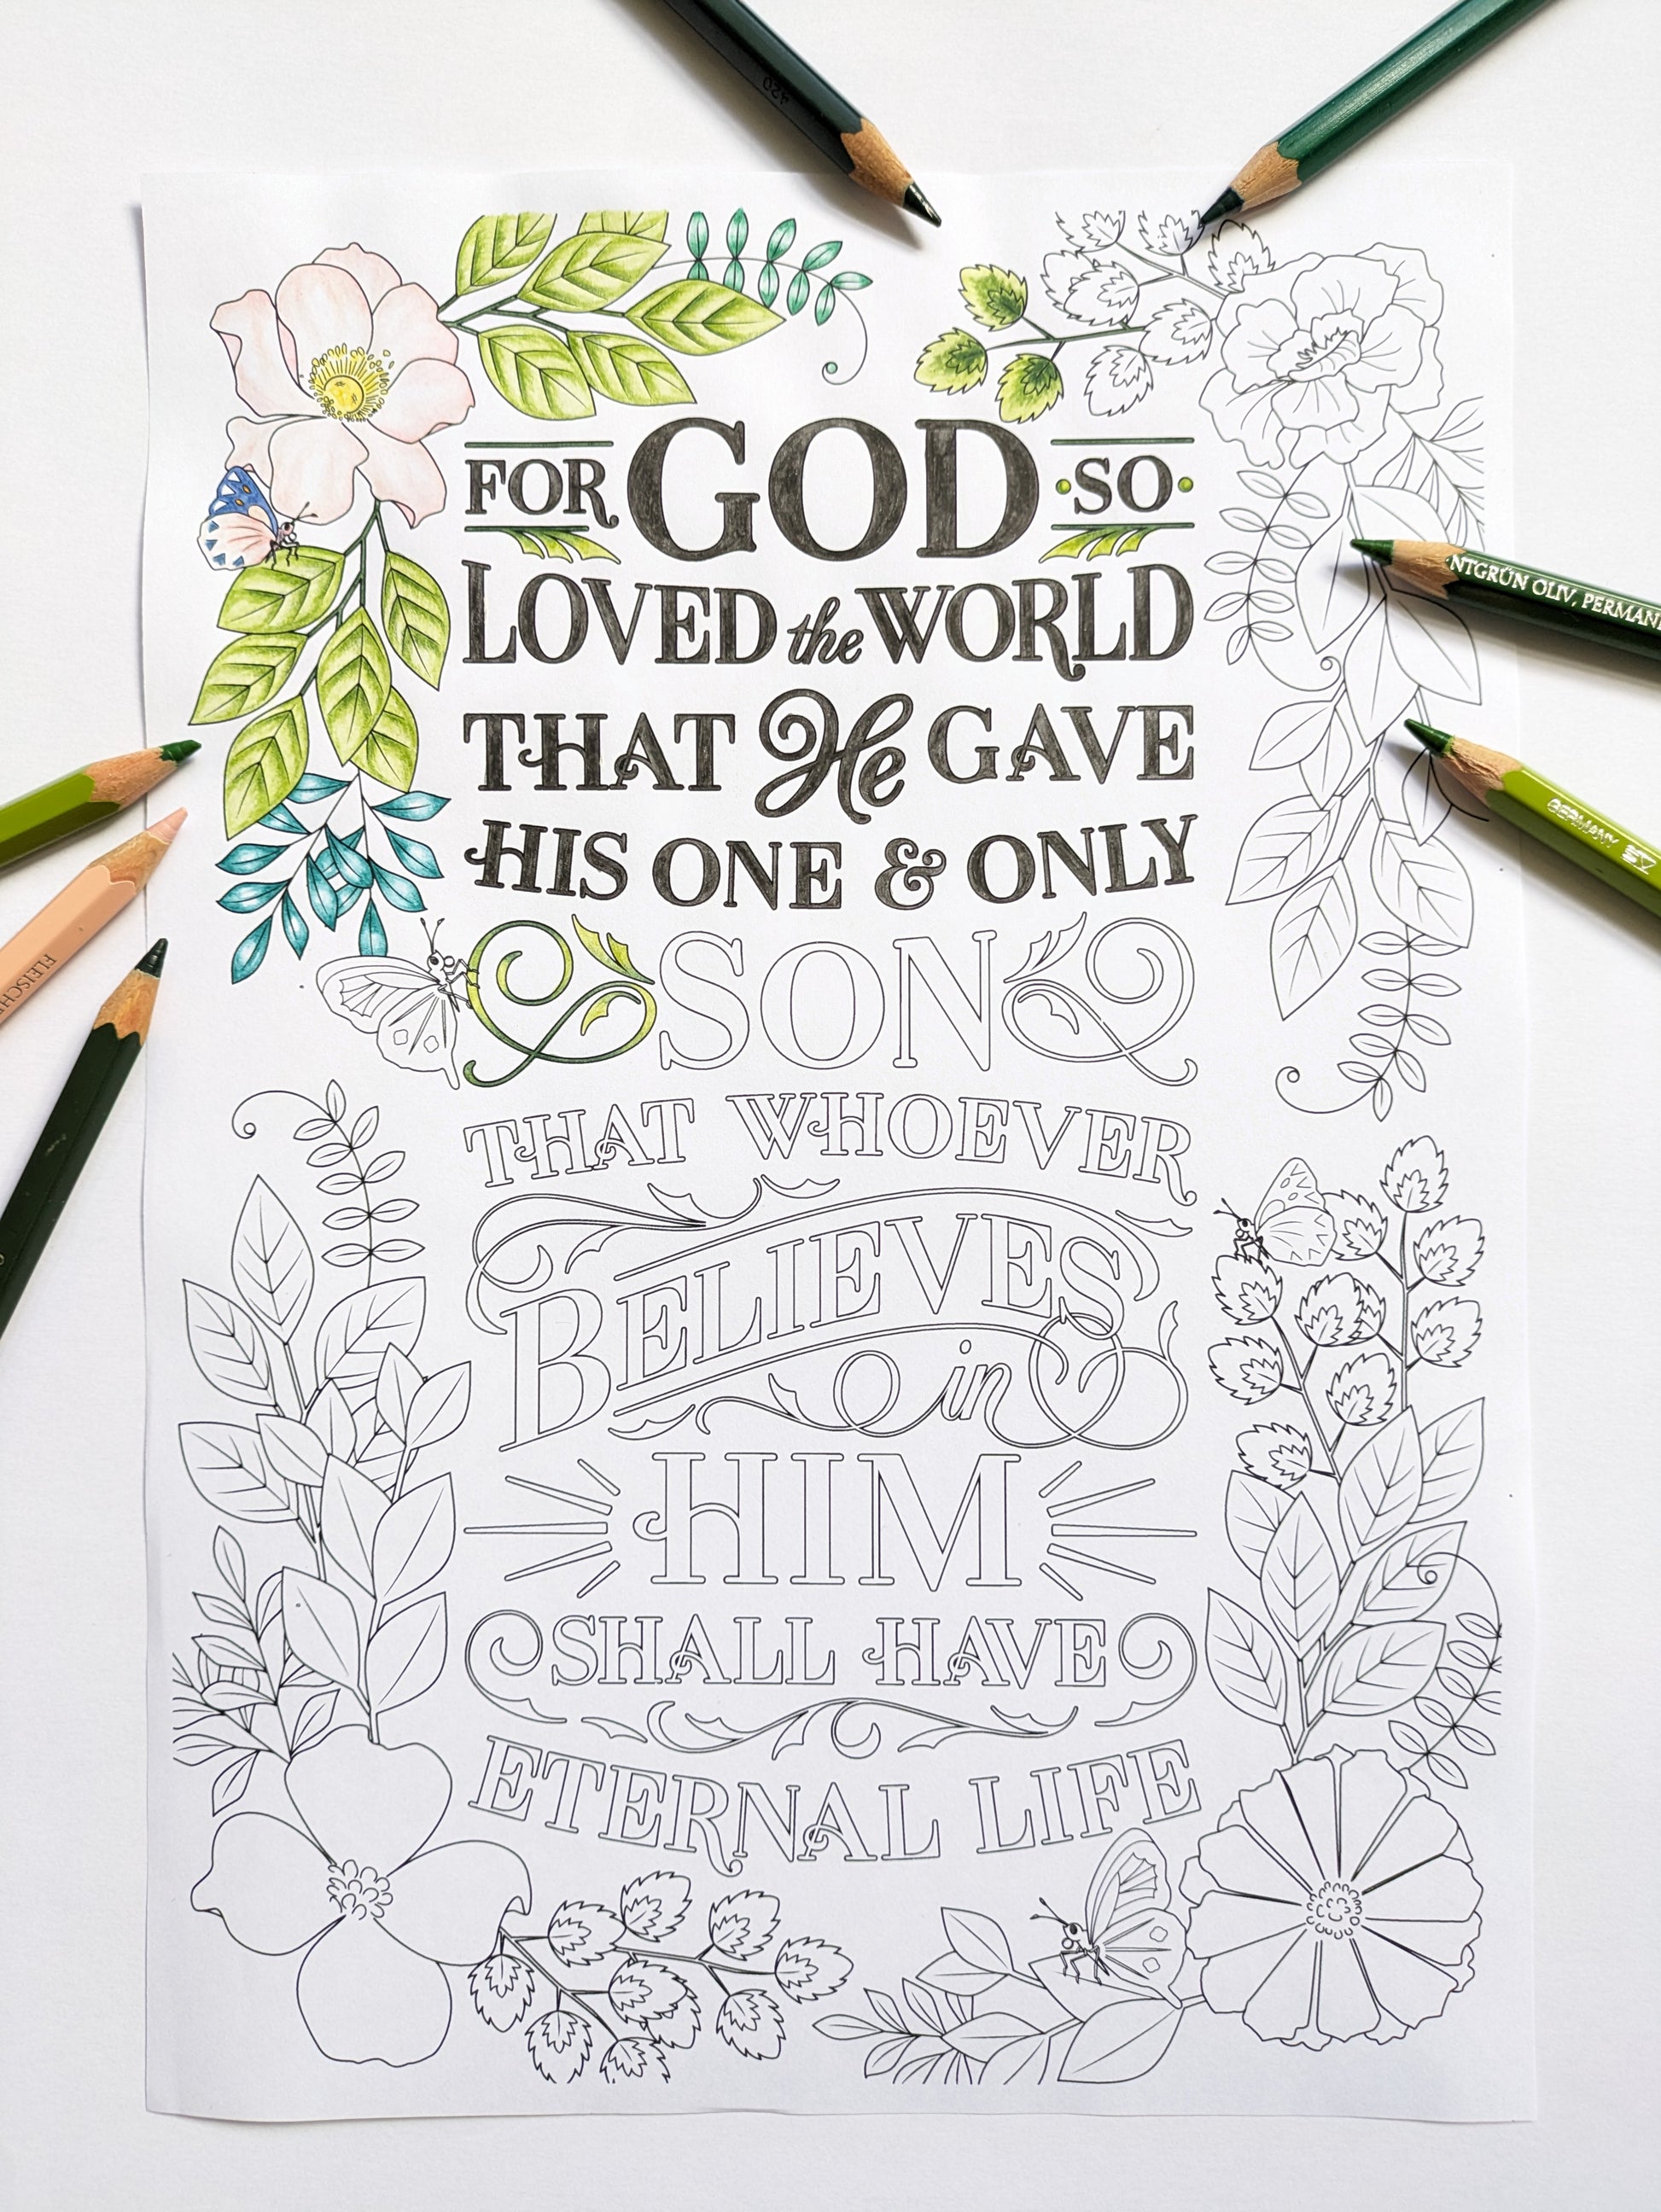 420
FOR GOD ·SO·
LOVED the WORLD
NTGRÜN OLIV, PERMAN
THAT He GAVE
GERMANY
HIS ONE & ONLY
FLEISCH
SON
THAT WHOEVER
BELIEVES
in
HIM
SHALL HAVE
ETERNAL LIFE